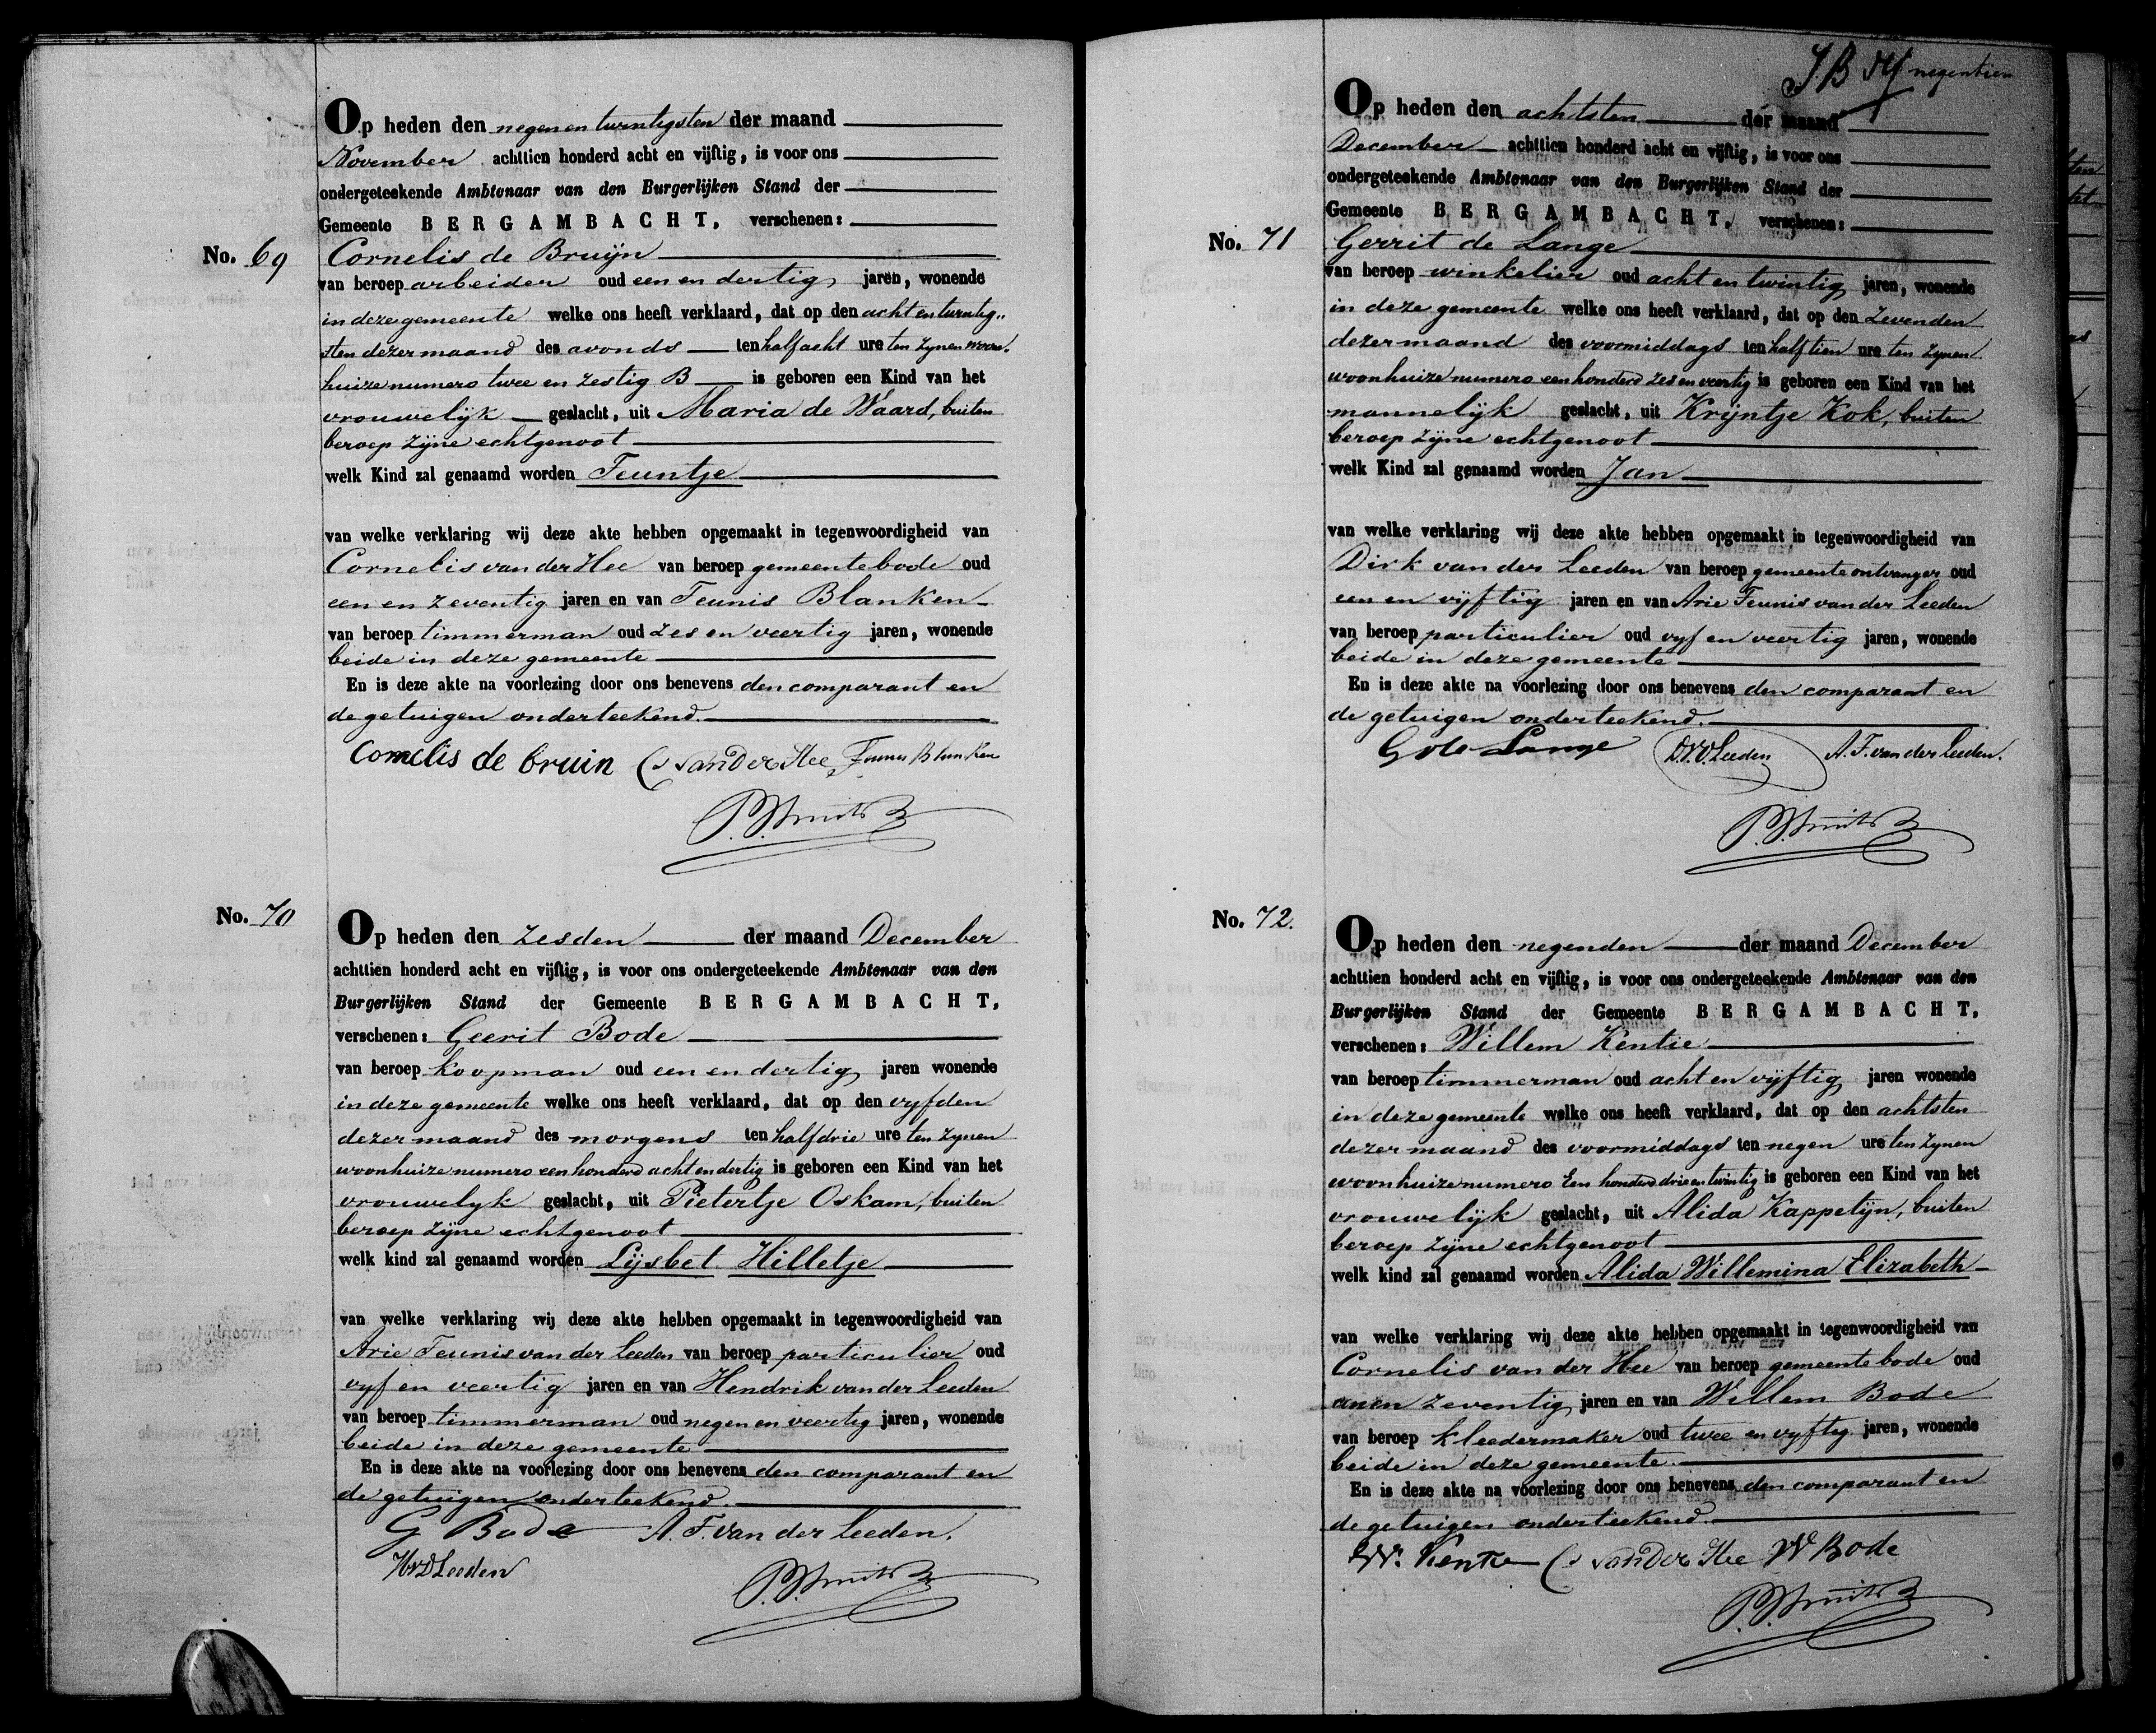 Op heden den negen en twintigsten der maand
November achttien honderd acht en vijftig, is voor ons
ondergeteekende Ambtenaar van den Burgerlijken Stand der
Gemeente BERGAMBACHT, verschenen:
No. 69 Cornelis de Bruijn
van beroep arbeider oud een en dertig jaren, wonende
in deze gemeente welke ons heeft verklaard, dat op den acht en twintig„
sten dezer maand des avonds ten half acht ure ten zynen woon„
huize numero twee en zestig B is geboren een Kind van het
vrouwelijk geslacht, uit Maria de Waard, buiten
beroep zijne echtgenoot
welk Kind zal genaamd worden Teuntje
van welke verklaring wij deze akte hebben opgemaakt in tegenwoordigheid van
Cornelis van der Hee van beroep gemeentebode oud
een en zeventig jaren en van Teunis Blanken
van beroep timmerman oud zes en veertig jaren, wonende
beide in deze gemeente
En is deze akte na voorlezing door ons benevens den comparant en
de getuigen onderteekend.
Cornelis de bruin Cs van Der Hee Teunis Blanken
No. 70
Op heden den zesden der maand December
achttien honderd acht en vijftig, is voor ons ondergeteekende Ambtenaar van den
Burgerlijken Stand der Gemeente BERGAMBACHT,
verschenen: Geerit Bode
van beroep koopman oud een en dertig jaren wonende
in deze gemeente welke ons heeft verklaard, dat op den vyfden
dezer maand des morgens ten half drie ure ten zynen
woonhuize numero een honderd acht en dertig is geboren een Kind van het
vrouwelyk geslacht, uit Pietertje Oskam, buiten
beroep zijne echtgenoot
welk kind zal genaamd worden Lijsbet Hilletje
van welke verklaring wij deze akte hebben opgemaakt in tegenwoordigheid van
Arie Teunis van der Leeden van beroep particulier oud
vyf en veertig jaren en van Hendrik van der Leeden
van beroep timmerman oud negen en veertig jaren, wonende
beide in deze gemeente
En is deze akte na voorlezing door ons benevens den comparant en
de getuigen onderteekend.
G Bode A. T. van der Leeden.
HvDLeeden
negentien
Op heden den achtsten der maand
December achttien honderd acht en vijftig, is voor ons
ondergeteekende Ambtenaar van den Burgerlijken Stand der
Gemeente BERGAMBACHT, verschenen:
No. 71 Gerrit de Lange
van beroep winkelier oud acht en twintig jaren, wonende
in deze gemeente welke ons heeft verklaard, dat op den zevenden
dezer maand des voormiddags ten half tien ure ten zynen
woonhuize numero een honderd zes en veertig is geboren een Kind van het
mannelijk geslacht, uit Krijntje Kok, buiten
beroep zijne echtgenoot
welk Kind zal genaamd worden Jan
van welke verklaring wij deze akte hebben opgemaakt in tegenwoordigheid van
Dirk van der Leeden van beroep gemeente ontvanger oud
een en vijftig jaren en van Arie Teunis van der Leeden
van beroep particulier oud vyf en veertig jaren, wonende
beide in deze gemeente
En is deze akte na voorlezing door ons benevens den comparant en
de getuigen onderteekend.
G de Lange D.V.D.Leeden A. T. van der Leeden.
No. 72.
Op heden den negenden der maand December
achttien honderd acht en vijftig, is voor ons ondergeteekende Ambtenaar van den
Burgerlijken Stand der Gemeente BERGAMBACHT,
verschenen: Willem Kentie
van beroep timmerman oud acht en vijftig jaren wonende
in deze gemeente welke ons heeft verklaard, dat op den achtsten
dezer maand des voormiddags ten negen ure ten zynen
woonhuize numero Een honderd drie en twintig is geboren een Kind van het
vrouwelijk geslacht, uit Alida Kappetijn, buiten
beroep zijne echtgenoot
welk kind zal genaamd worden Alida Willemina Elizabeth
van welke verklaring wij deze akte hebben opgemaakt in tegenwoordigheid van
Cornelis van der Hee van beroep gemeentebode oud
een en zeventig jaren en van Willem Bode
van beroep kleedermaker oud twee en vyftig jaren, wonende
beide in deze gemeente
En is deze akte na voorlezing door ons benevens den comparant en
de getuigen onderteekend.
W. Kentie Cs van Der Hee W Bode